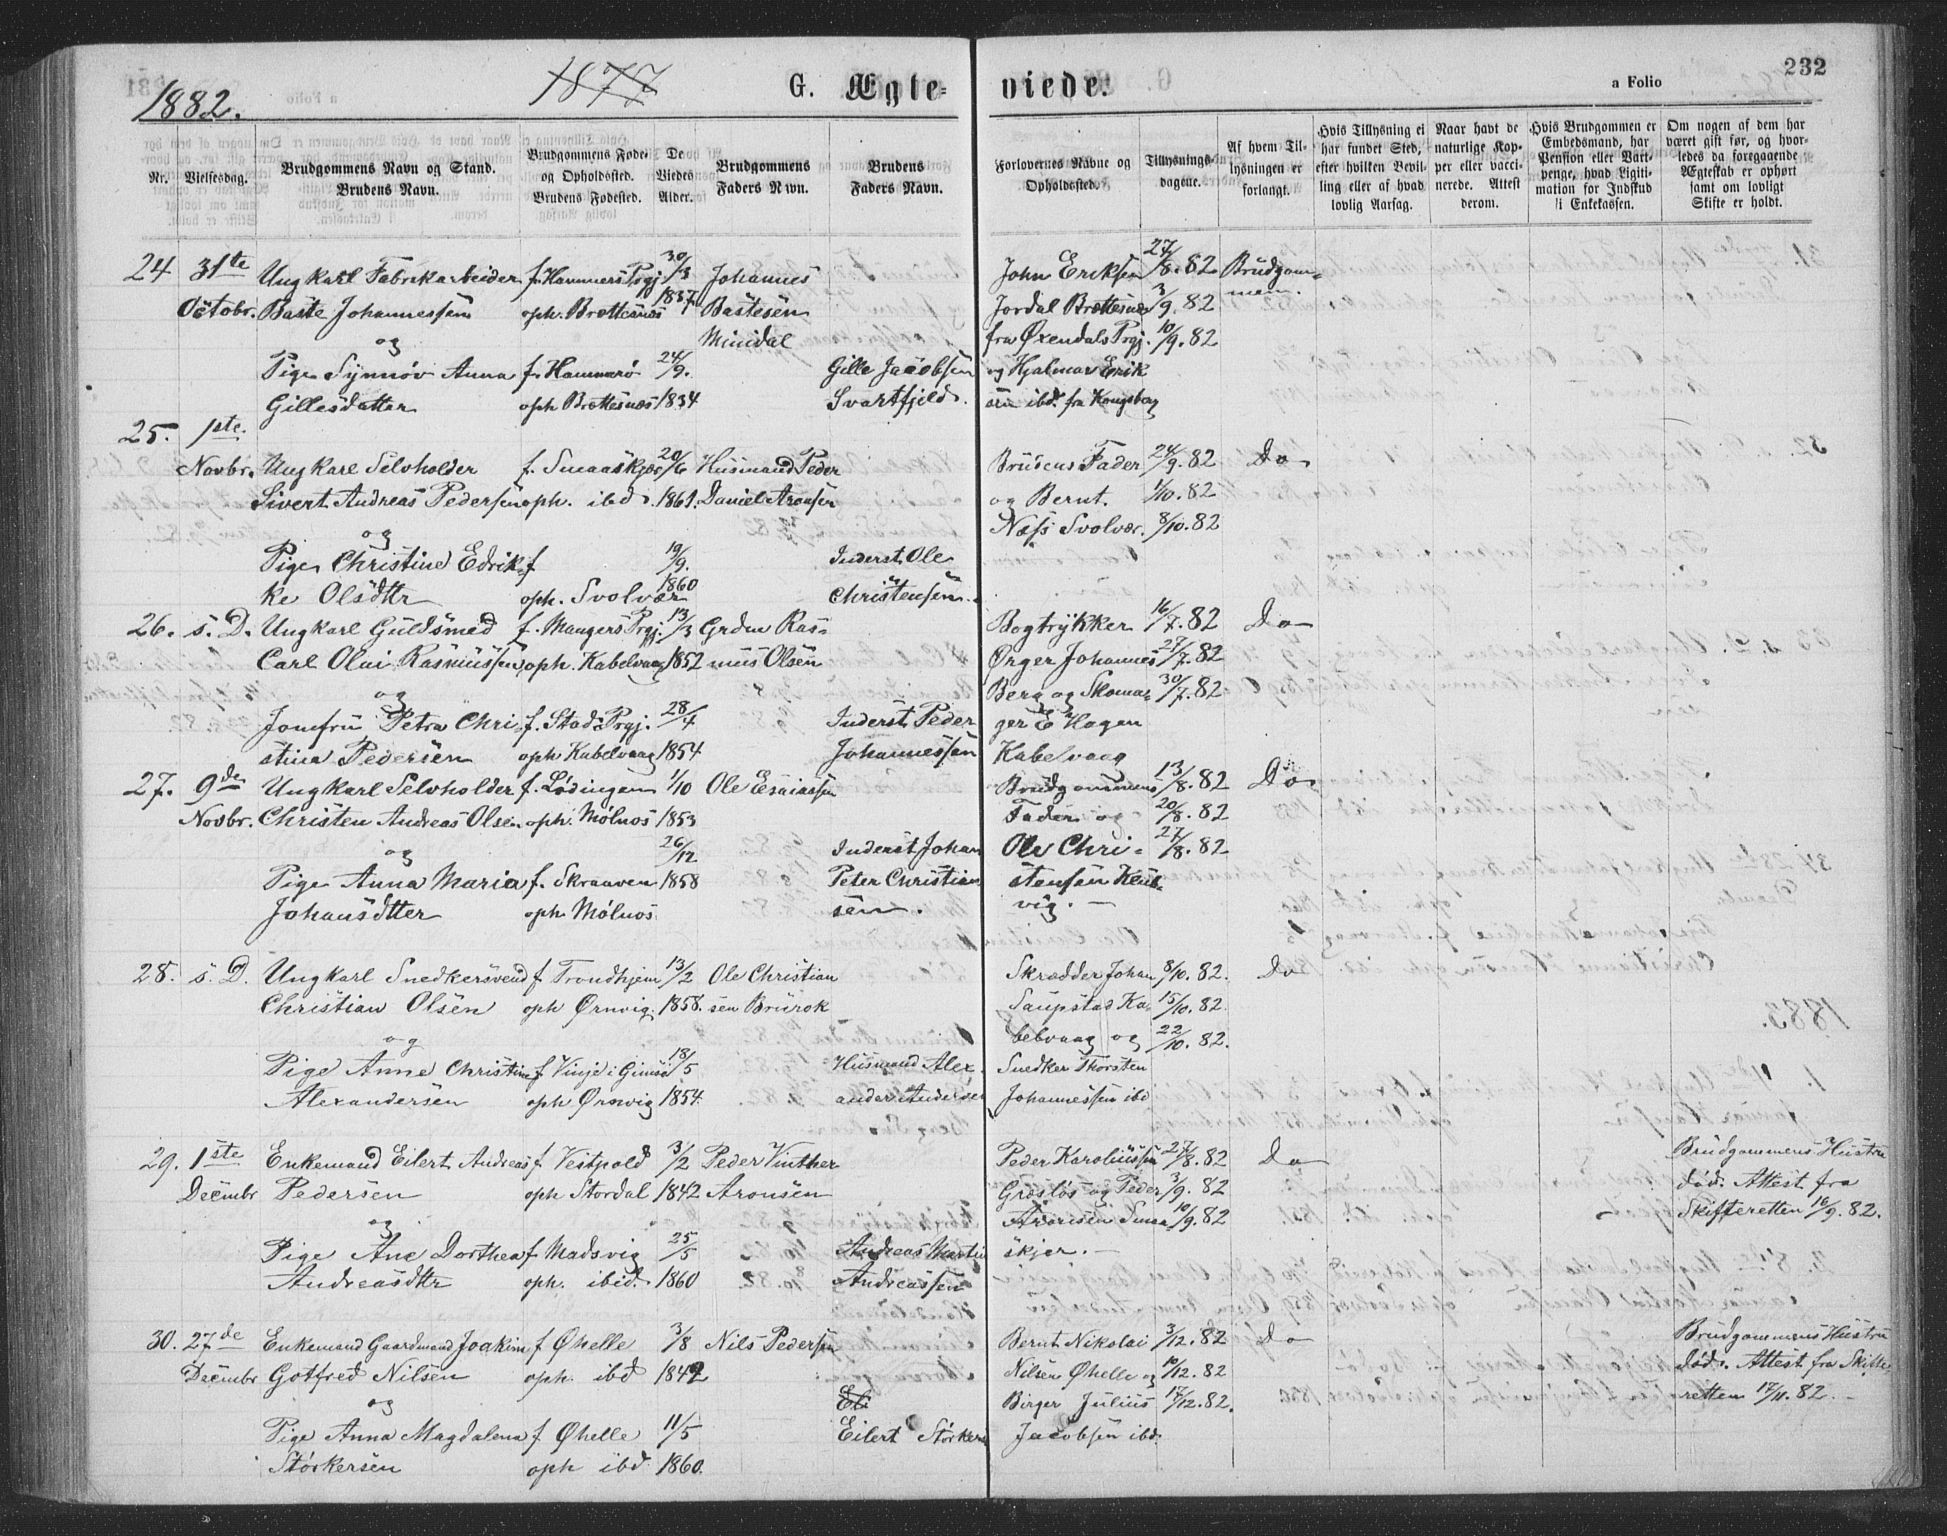 1882.
1877
G. Ægte=
viede.
a Folio
232
Nr.
Vielsesdag.
Brudgommens Navn og Stand.
Brudens Navn.
Brudgommens Føde-
og Opholdssted.
Brudens Fødested.
De
Viedes
Alder.
Brudgommens
Faders Navn.
Brudens
Faders Navn.
Forlovernes Navne og
Opholdssted.
Tillysnings-
dagene.
Af hvem Til-
lysningen er
forlangt.
Hvis Tillysning ei
har fundet Sted,
efter hvilken Bevil-
ling eller af hvad
lovlig Aarsag.
Naar havt de
naturlige Kop-
per eller vacci-
nerede. Attest
derom.
Hvis Brudgommen er
Embedsmand, har
Pension eller Vart-
penge, hvad Ligiti-
mation for Indskud
i Enkekassen.
Om nogen af dem har
været gift før, og hvor-
ledes da foregaaende
Ægteskab er ophørt
samt om lovligt
Skifte er holdt.
24 31te Ungkarl Fabrikarbeider f. Hammers Prgj 30/3 Johannes John Eriksen 27/8. 82 Brudgom=
Octobr. Baste Johannessen oph. Brettesnæs 1837 Bastesen Jordal Brettesnæs 3/9. 82 men.
og Minidal fra Øxendals Prgj. 10/9. 82
Pige Synnøv Anna f. Hammerø 24/9. Gille Jacobsen og Hjalmar Erik
Gillesdatter oph Brettesnæs 1834 Svartfjeld. sen ibd. fra Kongsberg
25. 1ste
Novbr. Ungkarl Selvholder f. Smaaskjær 20/6 Husmand Peder Brudens Fader 24/9. 82 Do
Sivert Andreas Pedersen oph. ibd. 1861. Daniel Aronsen og Bernt. 1/10. 82
og Næss Svolvær. 8/10. 82
Pige Christine Edrik f 19/9. Inderst Ole
ke Olsdtr oph. Svolvær 1860 Christensen.
26. s. D. Ungkarl Guldsmed f. Mangers Prgj. 13/3 Grdm Ras= Bogtrykker 16/7. 82 Do
Carl Olai Rasmussen oph. Kabelvaag 1852 mus Olsen Ørger Johannes 27/7. 82
og Berg og Skoma= 30/7. 82
Jomfru Petra Chri f. Stads Prgj. 28/4 Inderst Peder ger E Hagen
stina Pedersen oph Kabelvaag 1854 Johannessen Kabelvaag
27. 9de Ungkarl Selvholder f. Lødingen 1/10 Ole Esaiassen Brudgommens 13/8. 82 Do
Novbr. Christen Andreas Olsen oph. Mølnos 1853 Fader og 20/8. 82
og 26/12 Inderst Johan Ole Chri= 27/8. 82
Pige Anna Maria f. Skraaven 1858 Peter Christian stensen
Johansdtter oph Mølnos sen. vig.
28. s. D. Ungkarl Snedkersvend f Trondhjem 13/2 Ole Christian Skrædder Johan 8/10. 82. Do
Christian Olsen oph Ørnvig. 1858. sen Brurok Saupstad Ka 15/10. 82.
og belvaag og 22/10. 82.
Pige Anne Christine f Vinje i Gimsø 18/5 Husmand Alex Snedker Thorsten
Alexandersen oph Ørnvig 1854. ander Andersen Johannessen ibd
29. 1ste Enkemand Eilert Andreas f Vestpold 3/2 Peder Vinther Peder Karoliussen 27/8. 82 Do Brudgommens Hustru
Decmbr Pedersen oph Stordal 1842 Aronsen Græsløs og Peder 3/9. 82 død. Attest fra
og Aronsen Smaa 10/9. 82 Skifteretten 16/9. 82.
Pige Ane Dorthea f Madsvig 25/5 Andreas Martin skjær.
Andreasdtr oph. ibid. 1860 Andreassen
30. 27de Enkemand Gaardmand Joakim f Øhelle 3/8 Nils Pedersen Bernt Nikolai 3/12. 82 Do Brudgommens Hustru
Decmbr Gotfred Nilsen oph. ibd 1842 Nilsen Øhelle og 10/12. 82 død. Attest fra Skifte
og Eli Birger Julius 17/12. 82. retten 17/11. 82.
Pige Anna Magdalena f Øhelle 11/5 Eilert Storkers Jacobsen ibd.
Størkersen oph ibd 1860.